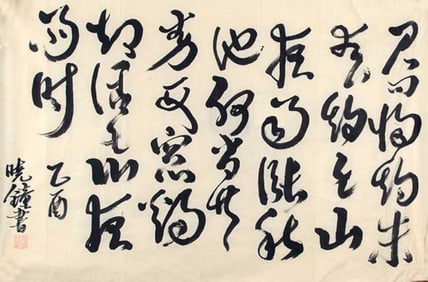 君问归期未
有期巴山
夜雨涨秋
池何当共
剪西窗烛
却话巴山夜
雨时
乙酉
晓鐘书